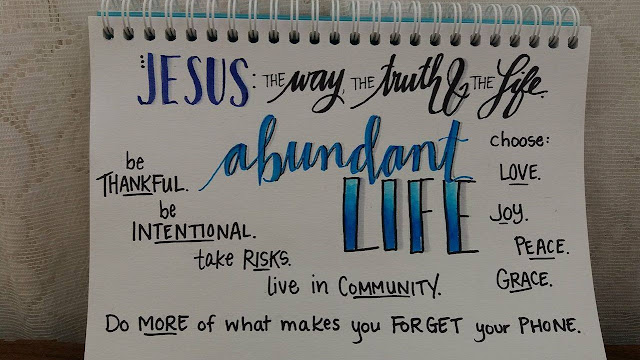 JESUS: THE way, THE truth & THE Life.
abundant
LIFE
be
THANKFUL.
be
INTENTIONAL.
take RISKS.
live in COMMUNITY.
choose:
LOVE.
JOY.
PEACE.
GRACE.
Do MORE of what makes you FORGET your PHONE.